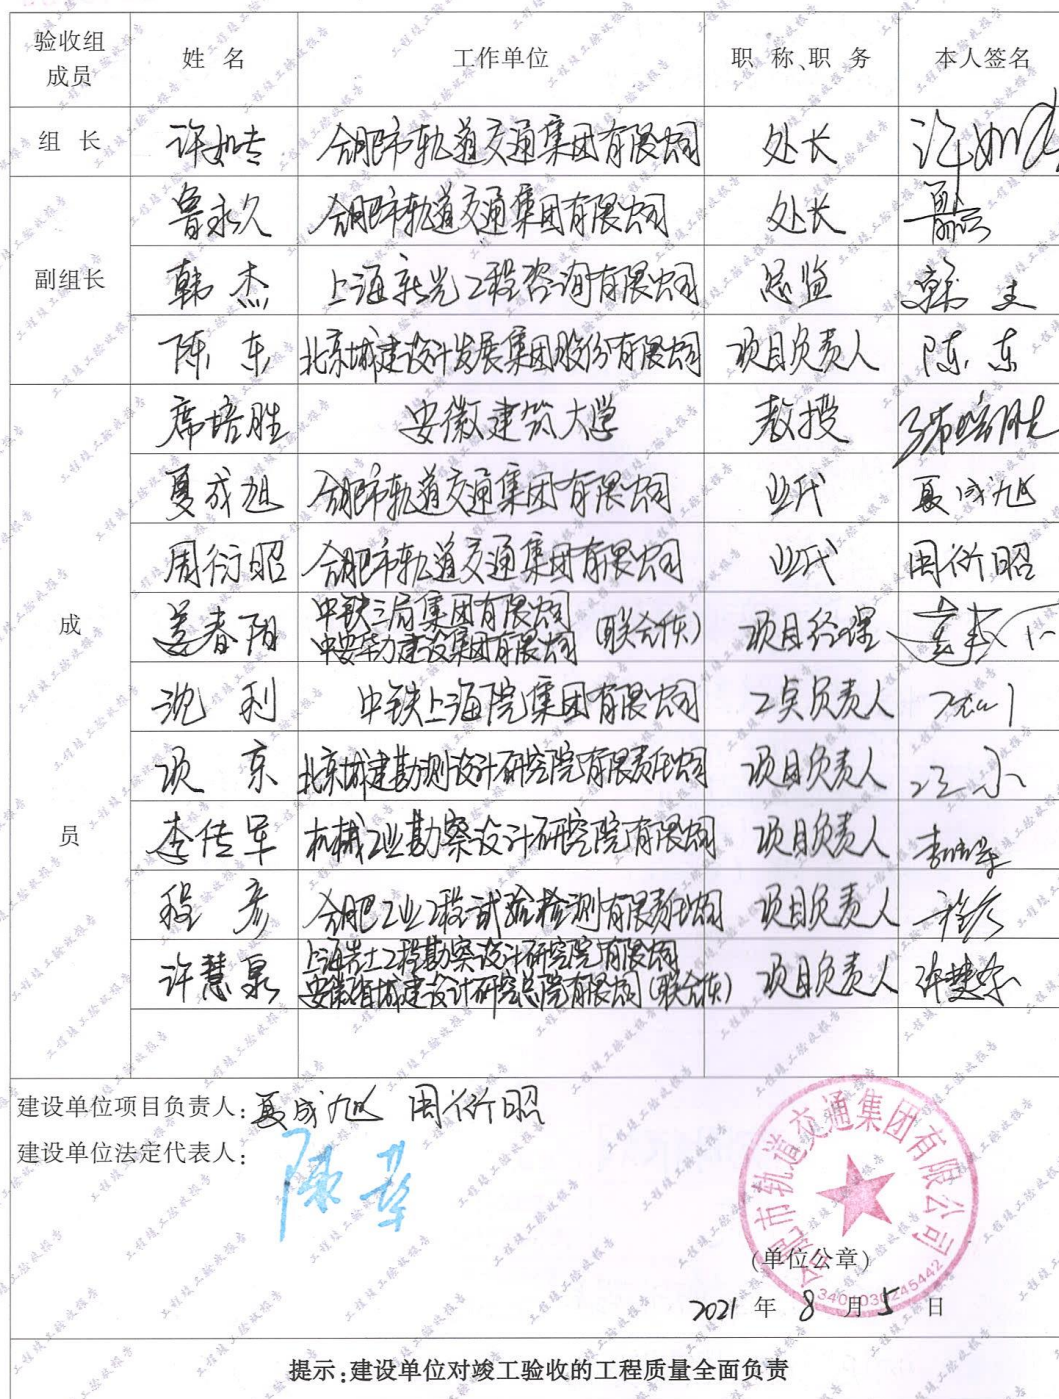 验收组
成员
姓 名
工作单位
职 称、职 务
本人签名
组 长
许如专 合肥市轨道交通集团有限公司 处长
鲁永久 合肥市轨道交通集团有限公司 处长
副组长
韩 杰 上海新光工程咨询有限公司 总监 韩 杰
陈 东 北京城建设计发展集团股份有限公司 项目负责人 陈 东
席培胜 安徽建筑大学 教授 席培胜
夏成旭 合肥市轨道交通集团有限公司 业代 夏成旭
周衍昭 合肥市轨道交通集团有限公司 业代 周衍昭
成
姜春阳 中铁三局集团有限公司
中安华力建设集团有限公司 (联合体) 项目经理
沈 利 中铁上海院集团有限公司 工点负责人
项 东 北京城建勘测设计研究院有限责任公司 项目负责人
员
李传军 机械工业勘察设计研究院有限公司 项目负责人 李传军
程 彦 合肥工业工程试验检测有限责任公司 项目负责人 程彦
许慧泉 上海岩土工程勘察设计研究院有限公司
安徽省城建设计研究总院有限公司 (联合体) 项目负责人
建设单位项目负责人: 夏成旭 周衍昭
建设单位法定代表人:
合肥市轨道交通集团有限公司
(单位公章)
3401030245442
2021 年 8 月 5 日
提示:建设单位对竣工验收的工程质量全面负责
工程竣工验收报告